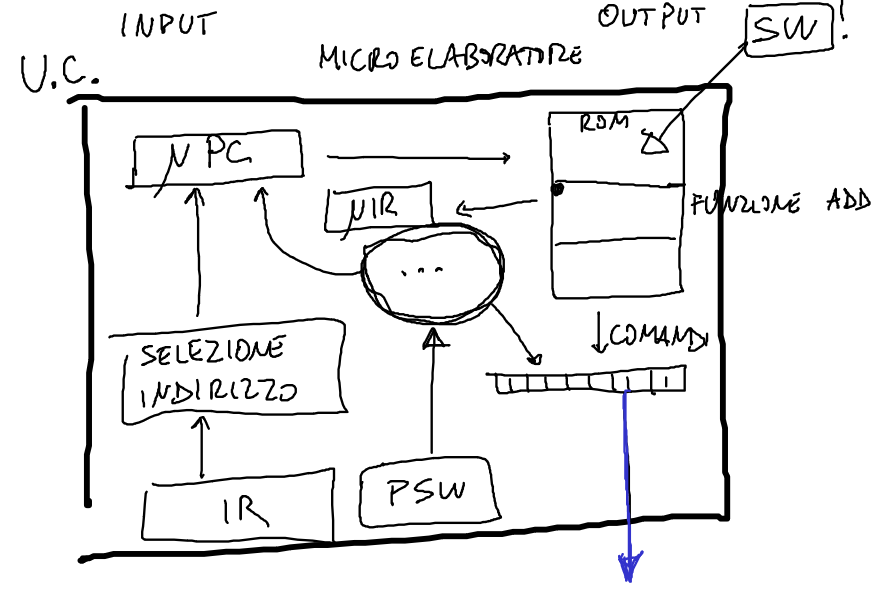 INPUT
OUTPUT
SW!
U.C.
MICRO ELABORATORE
ROM
μ PC
μIR
FUNZIONE ADD
...
COMANDI
SELEZIONE
INDIRIZZO
IR
PSW